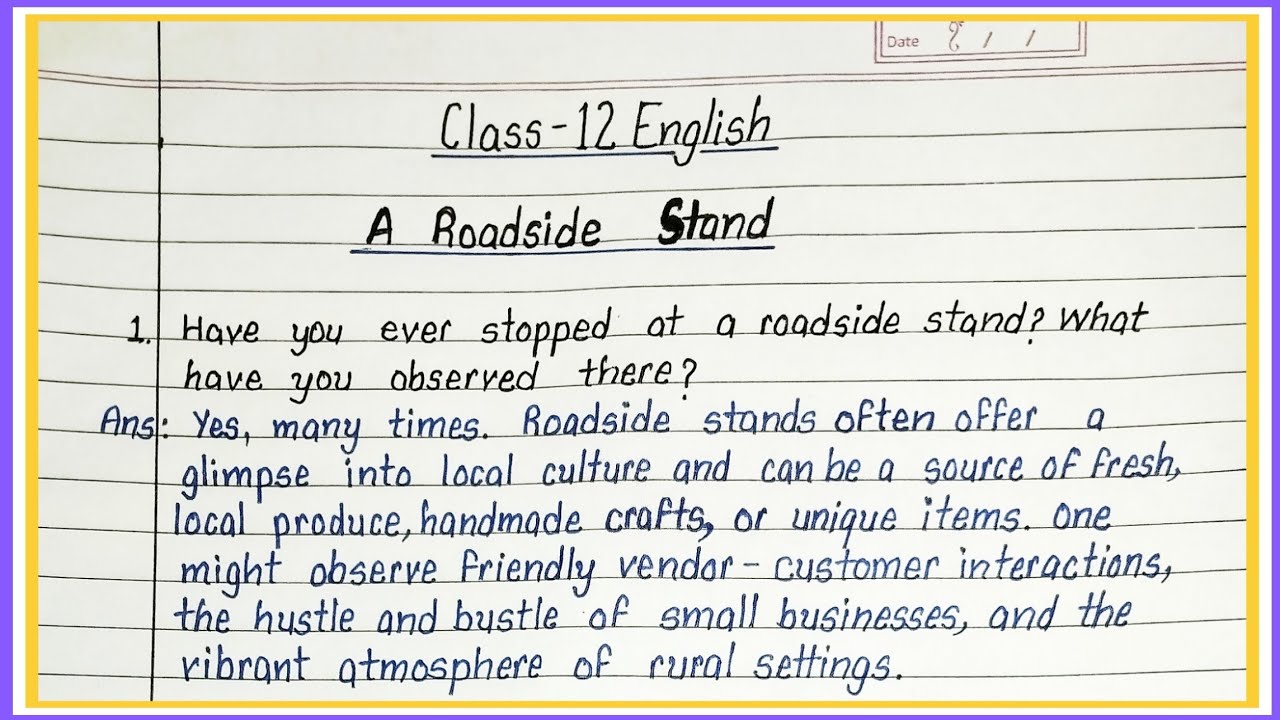 Date 8 / /
Class-12 English
A Roadside Stand
1. Have you ever stopped at a roadside stand? What
have you observed there?
Ans: Yes, many times. Roadside stands often offer a
glimpse into local culture and can be a source of fresh,
local produce, handmade crafts, or unique items. One
might observe friendly vendor-customer interactions,
the hustle and bustle of small businesses, and the
vibrant atmosphere of rural settings.